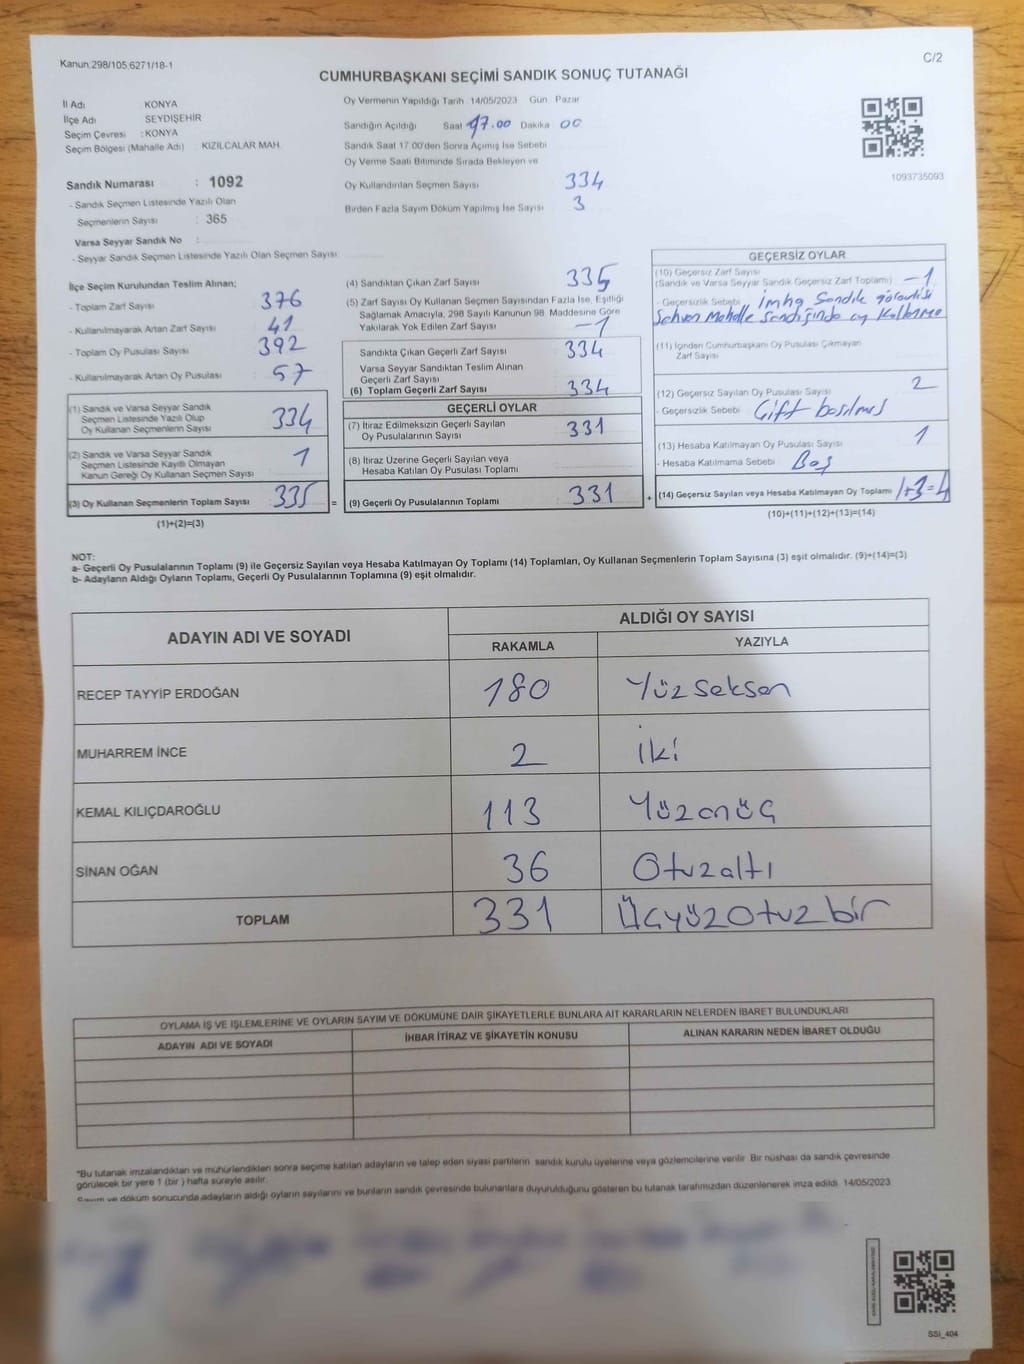 Kanun:298/105;6271/18-1
C/2
CUMHURBAŞKANI SEÇİMİ SANDIK SONUÇ TUTANAĞI
İl Adı KONYA
İlçe Adı SEYDİŞEHİR
Seçim Çevresi : KONYA
Seçim Bölgesi (Mahalle Adı) KIZILCALAR MAH.
Sandık Numarası : 1092
- Sandık Seçmen Listesinde Yazılı Olan
Seçmenlerin Sayısı : 365
Varsa Seyyar Sandık No :
- Seyyar Sandık Seçmen Listesinde Yazılı Olan Seçmen Sayısı
Oy Vermenin Yapıldığı Tarih 14/05/2023 Gün Pazar
Sandığın Açıldığı Saat 17.00 Dakika 00
Sandık Saat 17:00'den Sonra Açımış İse Sebebi
Oy Verme Saati Bitiminde Sırada Bekleyen ve
Oy Kullandırılan Seçmen Sayısı 334
Birden Fazla Sayım Döküm Yapılmış İse Sayısı 3
1093735093
İlçe Seçim Kurulundan Teslim Alınan;
- Toplam Zarf Sayısı 376
- Kullanılmayarak Artan Zarf Sayısı 41
- Toplam Oy Pusulası Sayısı 392
- Kullanılmayarak Artan Oy Pusulası 57
(1) Sandık ve Varsa Seyyar Sandık
Seçmen Listesinde Yazılı Olup
Oy Kullanan Seçmenlerin Sayısı 334
(2) Sandık ve Varsa Seyyar Sandık
Seçmen Listesinde Kayıtlı Olmayan
Kanun Gereği Oy Kullanan Seçmen Sayısı 1
(3) Oy Kullanan Seçmenlerin Toplam Sayısı 335 =
(1)+(2)=(3)
(4) Sandıktan Çıkan Zarf Sayısı 335
(5) Zarf Sayısı Oy Kullanan Seçmen Sayısından Fazla İse, Eşitliği
Sağlamak Amacıyla, 298 Sayılı Kanunun 98. Maddesine Göre
Yakılarak Yok Edilen Zarf Sayısı -1
Sandıkta Çıkan Geçerli Zarf Sayısı 334
Varsa Seyyar Sandıktan Teslim Alınan
Geçerli Zarf Sayısı
(6) Toplam Geçerli Zarf Sayısı 334
GEÇERLİ OYLAR
(7) İtiraz Edilmeksizin Geçerli Sayılan
Oy Pusulalarının Sayısı 331
(8) İtiraz Üzerine Geçerli Sayılan veya
Hesaba Katılan Oy Pusulası Toplamı
(9) Geçerli Oy Pusulalarının Toplamı 331 +
GEÇERSİZ OYLAR
(10) Geçersiz Zarf Sayısı
(Sandık ve Varsa Seyyar Sandık Geçersiz Zarf Toplamı) -1
- Geçersizlik Sebebi İmha Sandık görevlisi
Sehven Mahalle Sandığında oy Kullanma
(11) İçinden Cumhurbaşkanı Oy Pusulası Çıkmayan
Zarf Sayısı
(12) Geçersiz Sayılan Oy Pusulası Sayısı 2
- Geçersizlik Sebebi Çift basılmış
(13) Hesaba Katılmayan Oy Pusulası Sayısı 1
- Hesaba Katılmama Sebebi Boş
(14) Geçersiz Sayılan veya Hesaba Katılmayan Oy Toplamı 1+3=4
(10)+(11)+(12)+(13)=(14)
NOT:
a- Geçerli Oy Pusulalarının Toplamı (9) ile Geçersiz Sayılan veya Hesaba Katılmayan Oy Toplamı (14) Toplamları, Oy Kullanan Seçmenlerin Toplam Sayısına (3) eşit olmalıdır. (9)+(14)=(3)
b- Adayların Aldığı Oyların Toplamı, Geçerli Oy Pusulalarının Toplamına (9) eşit olmalıdır.
ADAYIN ADI VE SOYADI
ALDIĞI OY SAYISI
RAKAMLA YAZIYLA
RECEP TAYYİP ERDOĞAN 180 Yüz seksen
MUHARREM İNCE 2 İki
KEMAL KILIÇDAROĞLU 113 Yüzonüç
SİNAN OĞAN 36 Otuzaltı
TOPLAM 331 Üçyüz Otuz bir
OYLAMA İŞ VE İŞLEMLERİNE VE OYLARIN SAYIM VE DÖKÜMÜNE DAİR ŞİKAYETLERLE BUNLARA AİT KARARLARIN NELERDEN İBARET BULUNDUKLARI
ADAYIN ADI VE SOYADI İHBAR İTİRAZ VE ŞİKAYETİN KONUSU ALINAN KARARIN NEDEN İBARET OLDUĞU
*Bu tutanak imzalandıktan ve mühürlendikten sonra seçime katılan adayların ve talep eden siyasi partilerin sandık kurulu üyelerine veya gözlemcilerine verilir. Bir nüshası da sandık çevresinde
görülecek bir yere 1 (bir) hafta süreyle asılır.
Sayım ve döküm sonucunda adayların aldığı oyların sayılarını ve bunların sandık çevresinde bulunanlara duyurulduğunu gösteren bu tutanak tarafımızdan düzenlenerek imza edildi. 14/05/2023
SSİ_404